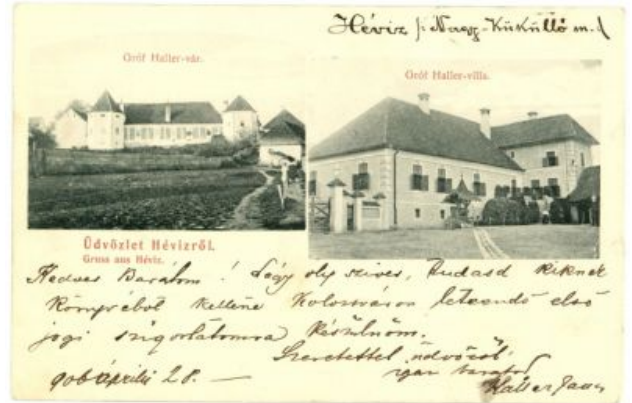 Hévíz (: Nagy-Küküllő m.)
Gróf Haller-vár.
Gróf Haller-villa.
Üdvözlet Hévizről.
Gruss aus Héviz.
Kedves Barátom! Légy oly szíves, tudasd kiknek
könyvéből kellene Kolozsváron leteendő első
jogi szigorlatomra készülnöm.
Szeretettel üdvözöl
igaz barátod
906 április 28. —
Haller